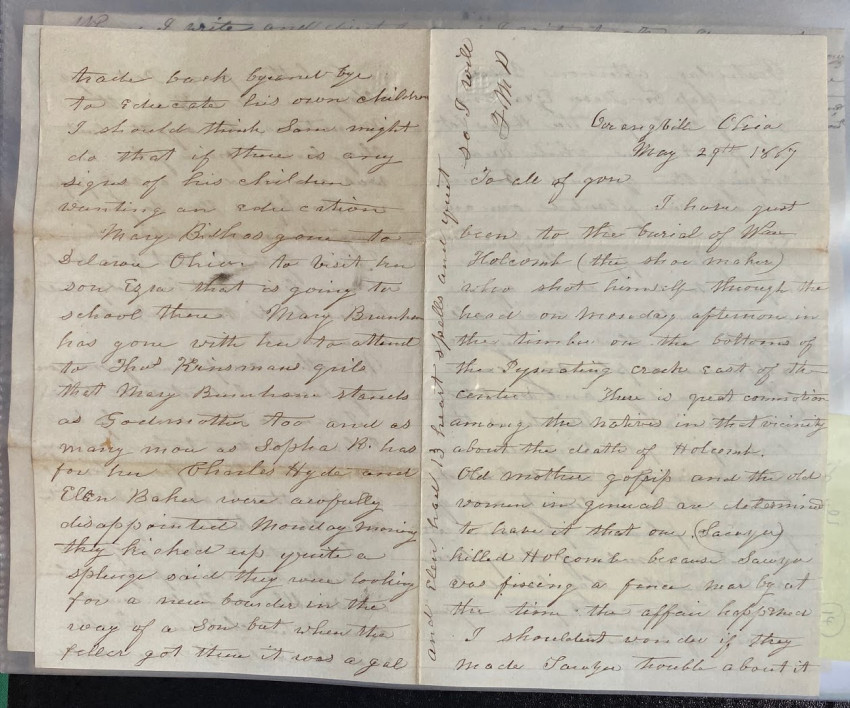 so I will
J. M. P
Orangville Ohio
May 29th 1867
To all of you
I have just
been to the burial of Wm
Holcomb (the shoe maker)
who shot himself through the
head on Monday afternoon in
the timber on the bottoms of
the Pymating creek east of the
center There is great commotion
among the natives in that vicinity
about the death of Holcomb.
Old mother gossip and the old
women in general are determined
to have it that one (Sawyer)
killed Holcomb because Sawyer
was fixing a fence near by at
the time the affair happened
I shouldent wonder if they
made Sawyer trouble about it
trade back by and bye
to educate his own children
I should think Sam might
do that if there is any
signs of his children
wanting an education
Mary Bil has gone to
Delaware Ohio to visit her
son Ezra that is going to
school there Mary Burnham
has gone with her to attend
to Thos Kinsmans girls
that Mary Burnham stands
as Godmother too and as
many more as Sopha K. has
for her Charles Hyde and
Ellen Baker were awfully
disappointed Monday morning
they kicked up quite a
splurge said they were looking
for a new boarder in the
way of a Son but when the
feller got there it was a gal
and Elen had 13 heart spells and quit